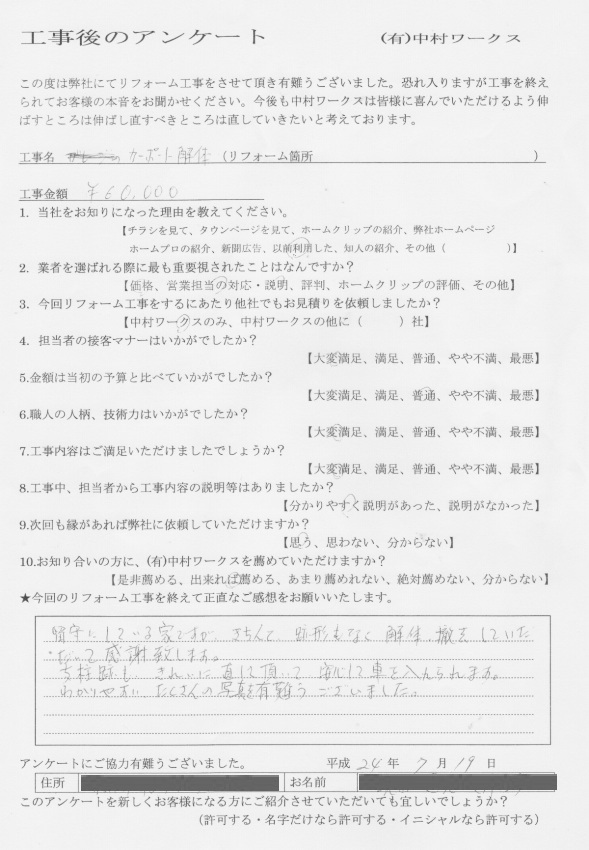 工事後のアンケート (有)中村ワークス
この度は弊社にてリフォーム工事をさせて頂き有難うございました。恐れ入りますが工事を終え
られてお客様の本音をお聞かせください。今後も中村ワークスは皆様に喜んでいただけるよう伸
ばすところは伸ばし直すべきところは直していきたいと考えております。
工事名 カーポート解体 (リフォーム箇所 )
工事金額 ¥60,000
1. 当社をお知りになった理由を教えてください。
【チラシを見て、タウンページを見て、ホームクリップの紹介、弊社ホームページ
ホームプロの紹介、新聞広告、以前利用した、知人の紹介、その他( )】
2. 業者を選ばれる際に最も重要視されたことはなんですか?
【価格、営業担当の対応・説明、評判、ホームクリップの評価、その他】
3. 今回リフォーム工事をするにあたり他社でもお見積りを依頼しましたか?
【中村ワークスのみ、中村ワークスの他に( )社】
4. 担当者の接客マナーはいかがでしたか?
【大変満足、満足、普通、やや不満、最悪】
5.金額は当初の予算と比べていかがでしたか?
【大変満足、満足、普通、やや不満、最悪】
6.職人の人柄、技術力はいかがでしたか?
【大変満足、満足、普通、やや不満、最悪】
7.工事内容はご満足いただけましたでしょうか?
【大変満足、満足、普通、やや不満、最悪】
8.工事中、担当者から工事内容の説明等はありましたか?
【分かりやすく説明があった、説明がなかった】
9.次回も縁があれば弊社に依頼していただけますか?
【思う、思わない、分からない】
10.お知り合いの方に、(有)中村ワークスを薦めていただけますか?
【是非薦める、出来れば薦める、あまり薦めれない、絶対薦めない、分からない】
★今回のリフォーム工事を終えて正直なご感想をお願いいたします。
留守にしている家ですが、きちんと 跡形もなく 解体、撤去していた
だいて感謝致します。
支柱跡も きれいに直して頂いて 安心して車を入れられます。
わかりやすい たくさんの写真を有難うございました。
アンケートにご協力有難うございました。 平成 24 年 7 月 19 日
住所 お名前
このアンケートを新しくお客様になる方にご紹介させていただいても宜しいでしょうか?
(許可する・名字だけなら許可する・イニシャルなら許可する)